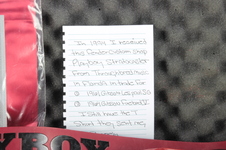 In 1994 I received
this Fender custom shop
Playboy Stratocaster
from Thoroughbred music
in Florida in trade for
① 1961 Gibson Les Paul SG
② Gibson Firebird
I still have the T
Shirt they sent me,
YBOY